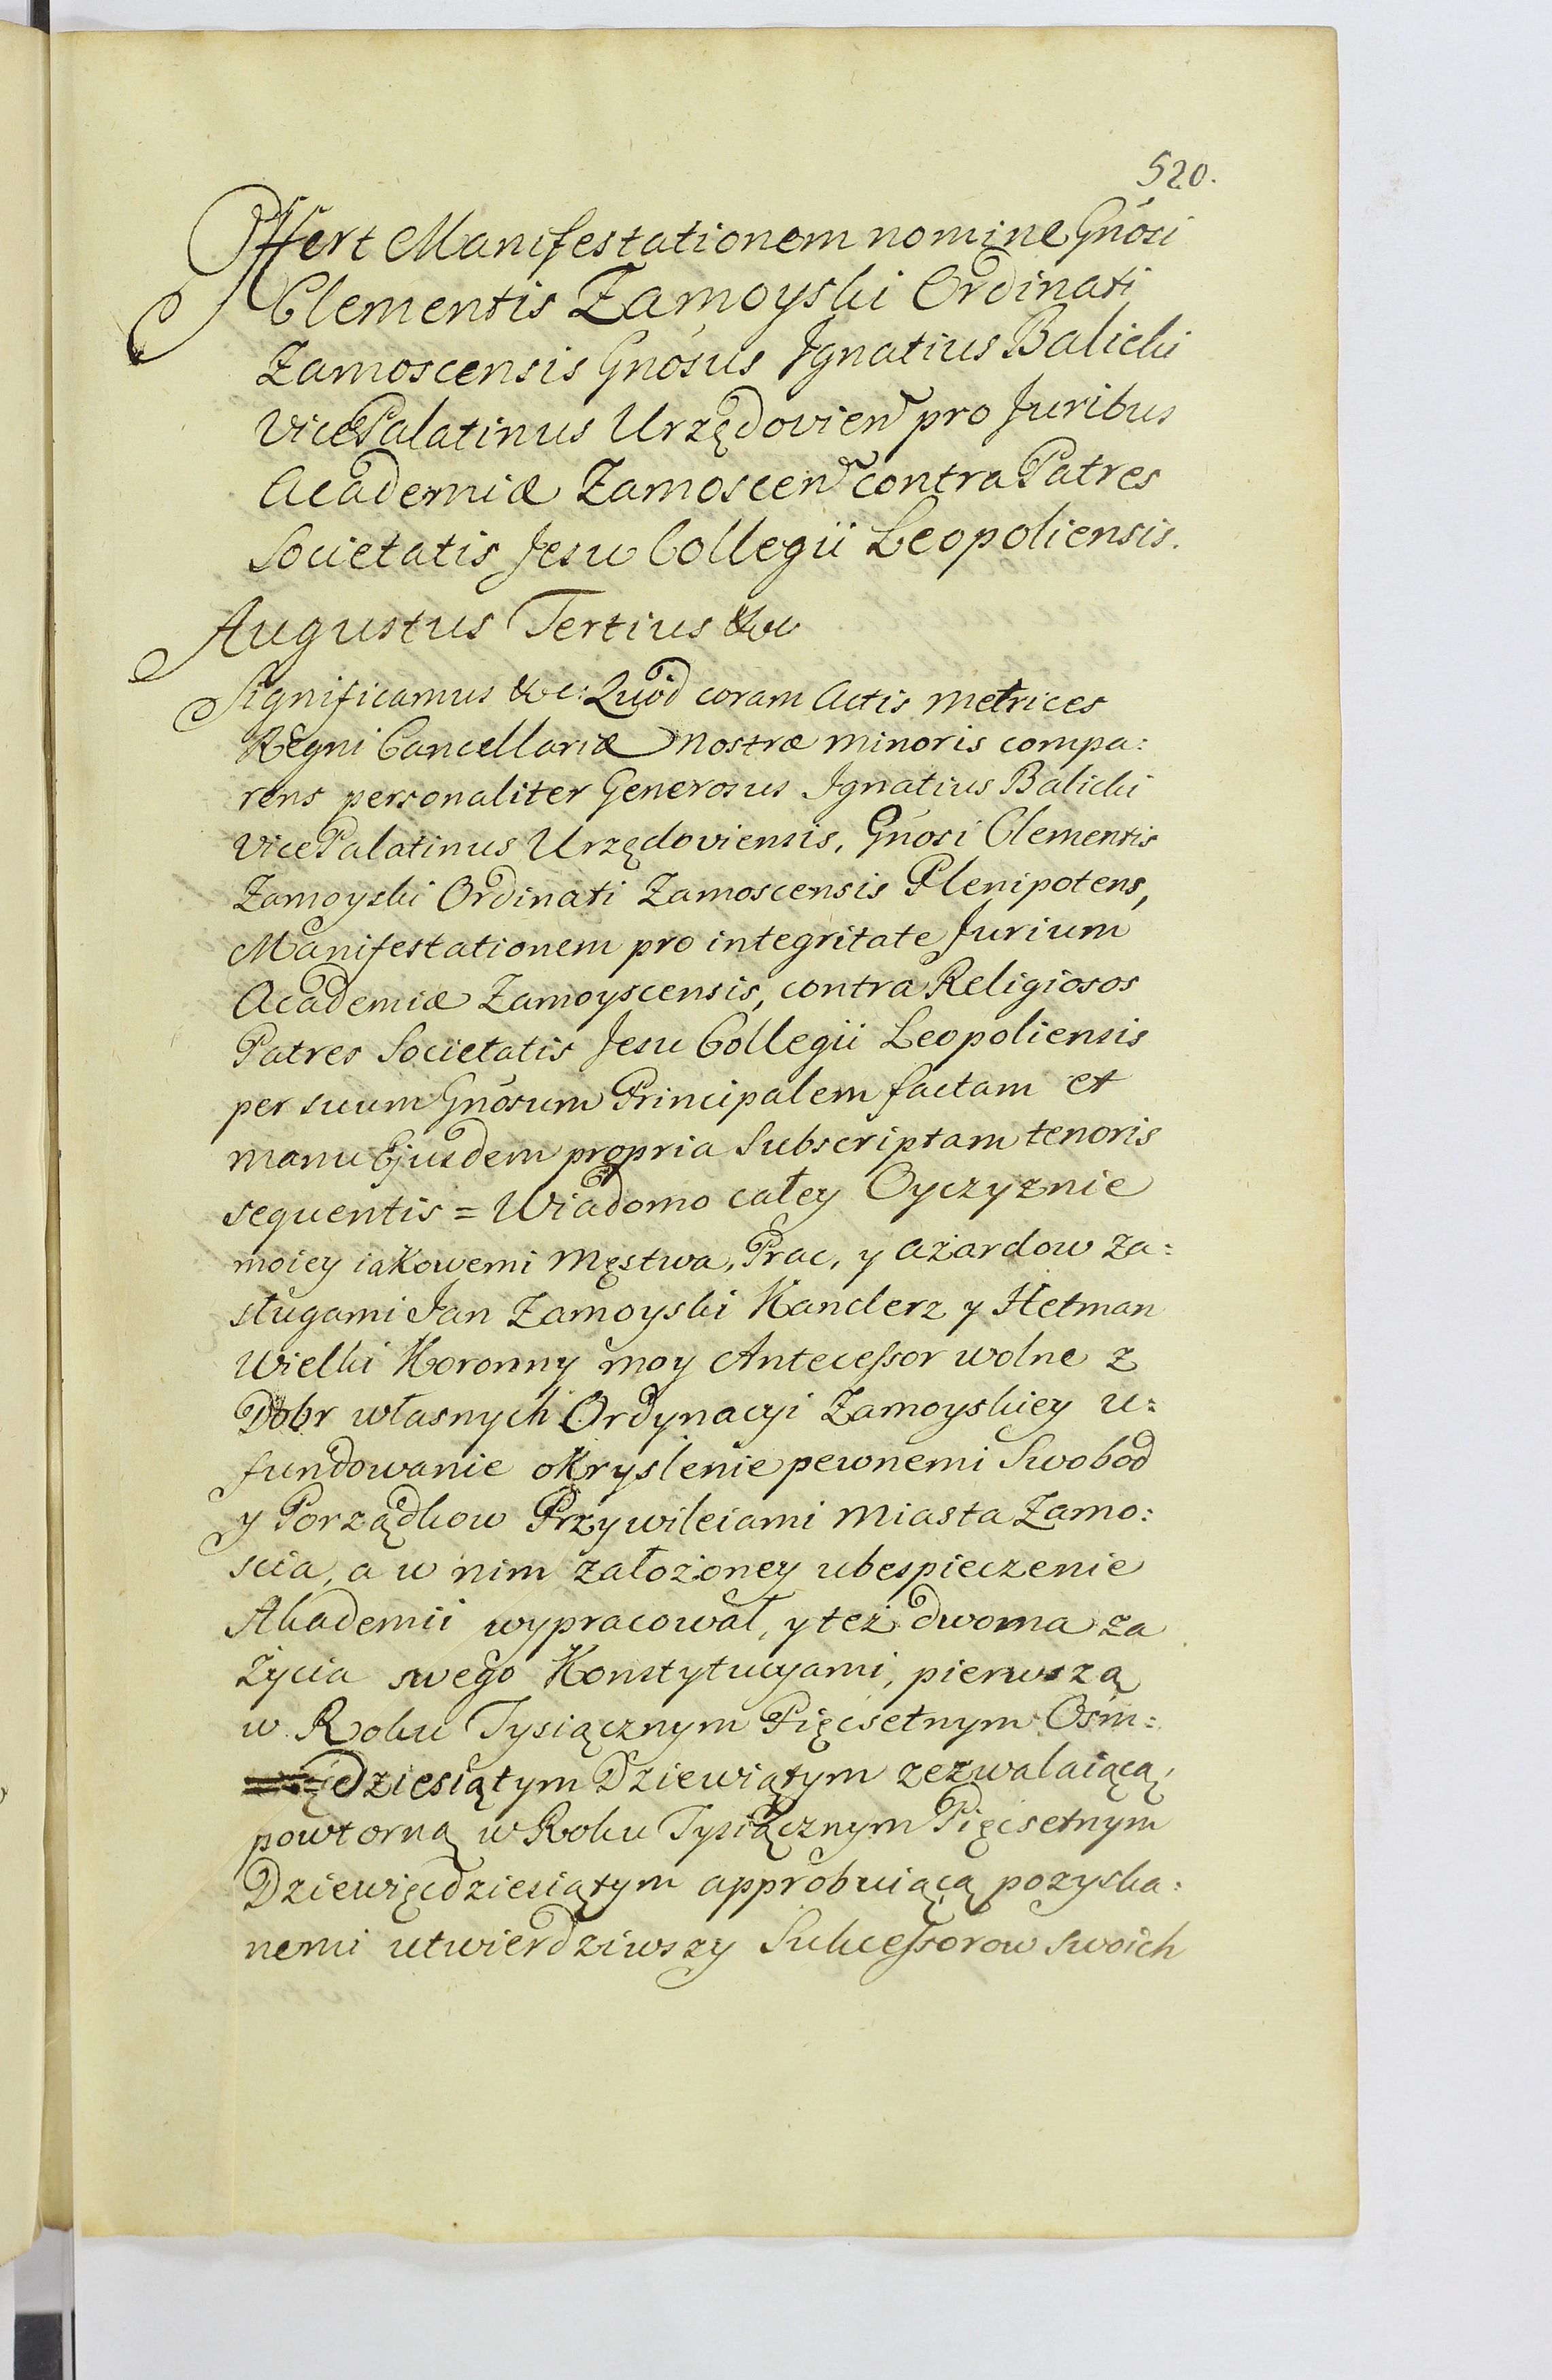 520.
Offert Manifestationem nomine Gnosi
Clementis Zamoyski Ordinati
Zamoscensis Gnosus Ignatius Balicki
VicePalatinus Urzędovien pro Juribus
Academiæ Zamoscen contra Patres
Societatis Jesu Collegii Leopoliensis.
Augustus Tertius &c
Significamus &c: Quod coram Actis Metrices
Regni Cancellariæ Nostræ minoris compa:
rens personaliter Generosus Ignatius Balicki
VicePalatinus Urzędoviensis, Gnosi Clementis
Zamoyski Ordinati Zamoscensis Plenipotens,
Manifestationem pro integritate Jurium
Academiæ Zamoyscensis, contra Religiosos
Patres Societatis Jesu Collegii Leopoliensis
per suum Gnosum Principalem factam et
manu Ejusdem propria Subscriptam tenoris
sequentis = Wiadomo całey Oyczyznie
moiey iakowemi Męstwa, Prac, y ażardow za:
sługami Jan Zamoyski Kanclerz y Hetman
Wielki Koronny moy Antecessor wolne z
Dobr własnych Ordynacyi Zamoyskiey u:
fundowanie okryslenie pewnemi Swobod
y Porządkow Przywileiami Miasta Zamo:
scia, a w nim założoney ubespieczenie
Akademii wypracował, y też dwoma za
życia swego Konstytucyami, pierwszą
w Roku Tysiącznym Pięcsetnym Osm:
dziesiątym Dziewiątym zezwalaiącą,
powtorną w Roku Tysiącznym Pięcsetnym
Dziewięcdziesiątym approbuiącą pozyska:
nemi utwierdziwszy Sukcessorow swoich